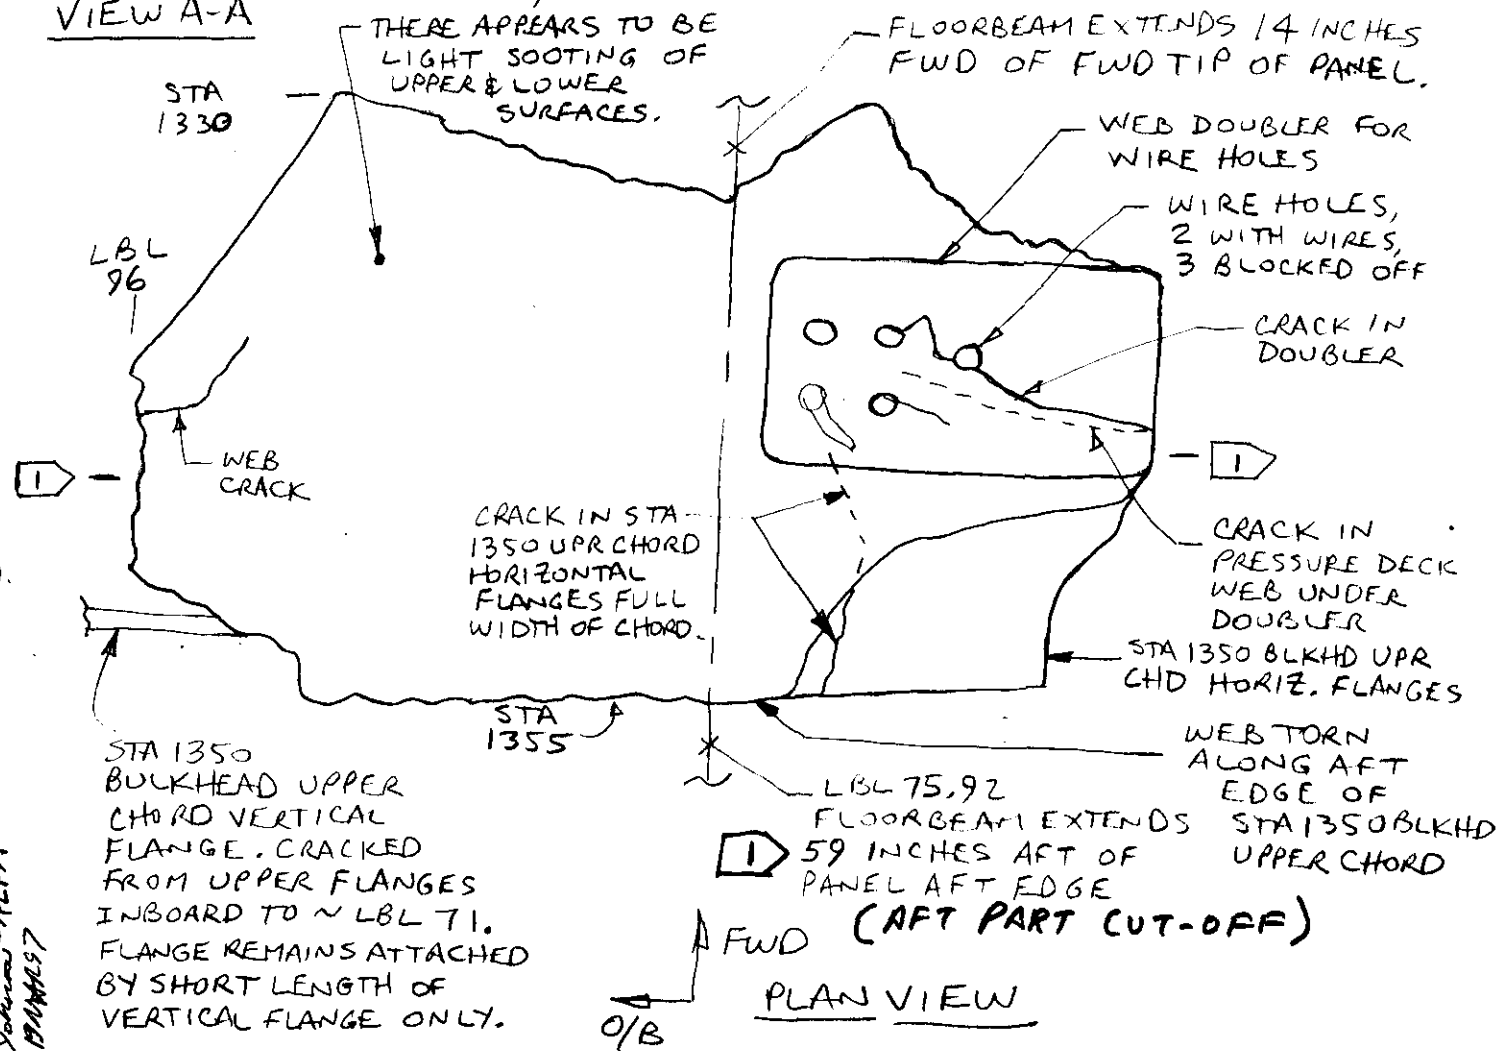 VIEW A-A
THERE APPEARS TO BE
LIGHT SOOTING OF
UPPER & LOWER
SURFACES.
FLOORBEAM EXTENDS 14 INCHES
FWD OF FWD TIP OF PANEL.
STA
1330
WEB DOUBLER FOR
WIRE HOLES
WIRE HOLES,
2 WITH WIRES,
3 BLOCKED OFF
LBL
96
CRACK IN
DOUBLER
WEB
CRACK
1
1
CRACK IN STA
1350 UPR CHORD
HORIZONTAL
FLANGES FULL
WIDTH OF CHORD.
CRACK IN
PRESSURE DECK
WEB UNDER
DOUBLER
STA 1350 BLKHD UPR
CHD HORIZ. FLANGES
STA
1355
WEB TORN
ALONG AFT
EDGE OF
STA 1350 BLKHD
UPPER CHORD
STA 1350
BULKHEAD UPPER
CHORD VERTICAL
FLANGE. CRACKED
FROM UPPER FLANGES
INBOARD TO ~ LBL 71.
FLANGE REMAINS ATTACHED
BY SHORT LENGTH OF
VERTICAL FLANGE ONLY.
LBL 75.92
FLOORBEAM EXTENDS
1 59 INCHES AFT OF
PANEL AFT EDGE
(AFT PART CUT-OFF)
FWD
O/B
PLAN VIEW